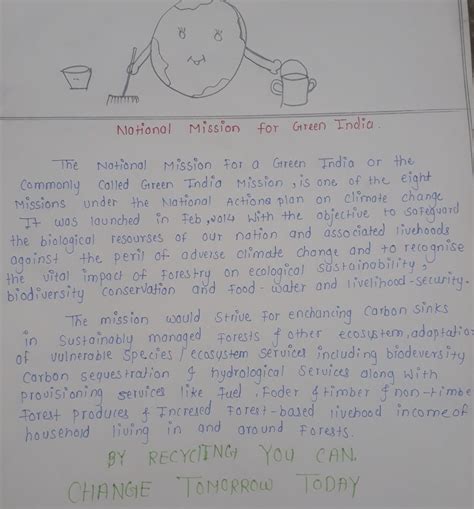 National Mission for Green India.
The National Mission for a Green India or the
Commonly Called Green India Mission, is one of the eight
Missions under the National Actions plan on Climate change
It was launched in Feb, 2014 with the objective to safeguard
the biological resourses of our nation and associated livehoods
against the peril of adverse climate change and to recognise
the vital impact of forestry on ecological sustainability,
biodiversity conservation and food-water and livelihood-security.
The mission would strive for enchancing Carbon sinks
in Sustainably managed Forests & other ecosystem, adaptatio
of vulnerable Species / ecosystem services including biodeversity
Carbon sequestration & hydrological Services along with
provisioning services like fuel, Foder & timber & non-timbe
Forest produces & Incresed Forest-based livehood income of
household living in and around Forests.
BY RECYCLING YOU CAN
CHANGE TOMORROW TODAY